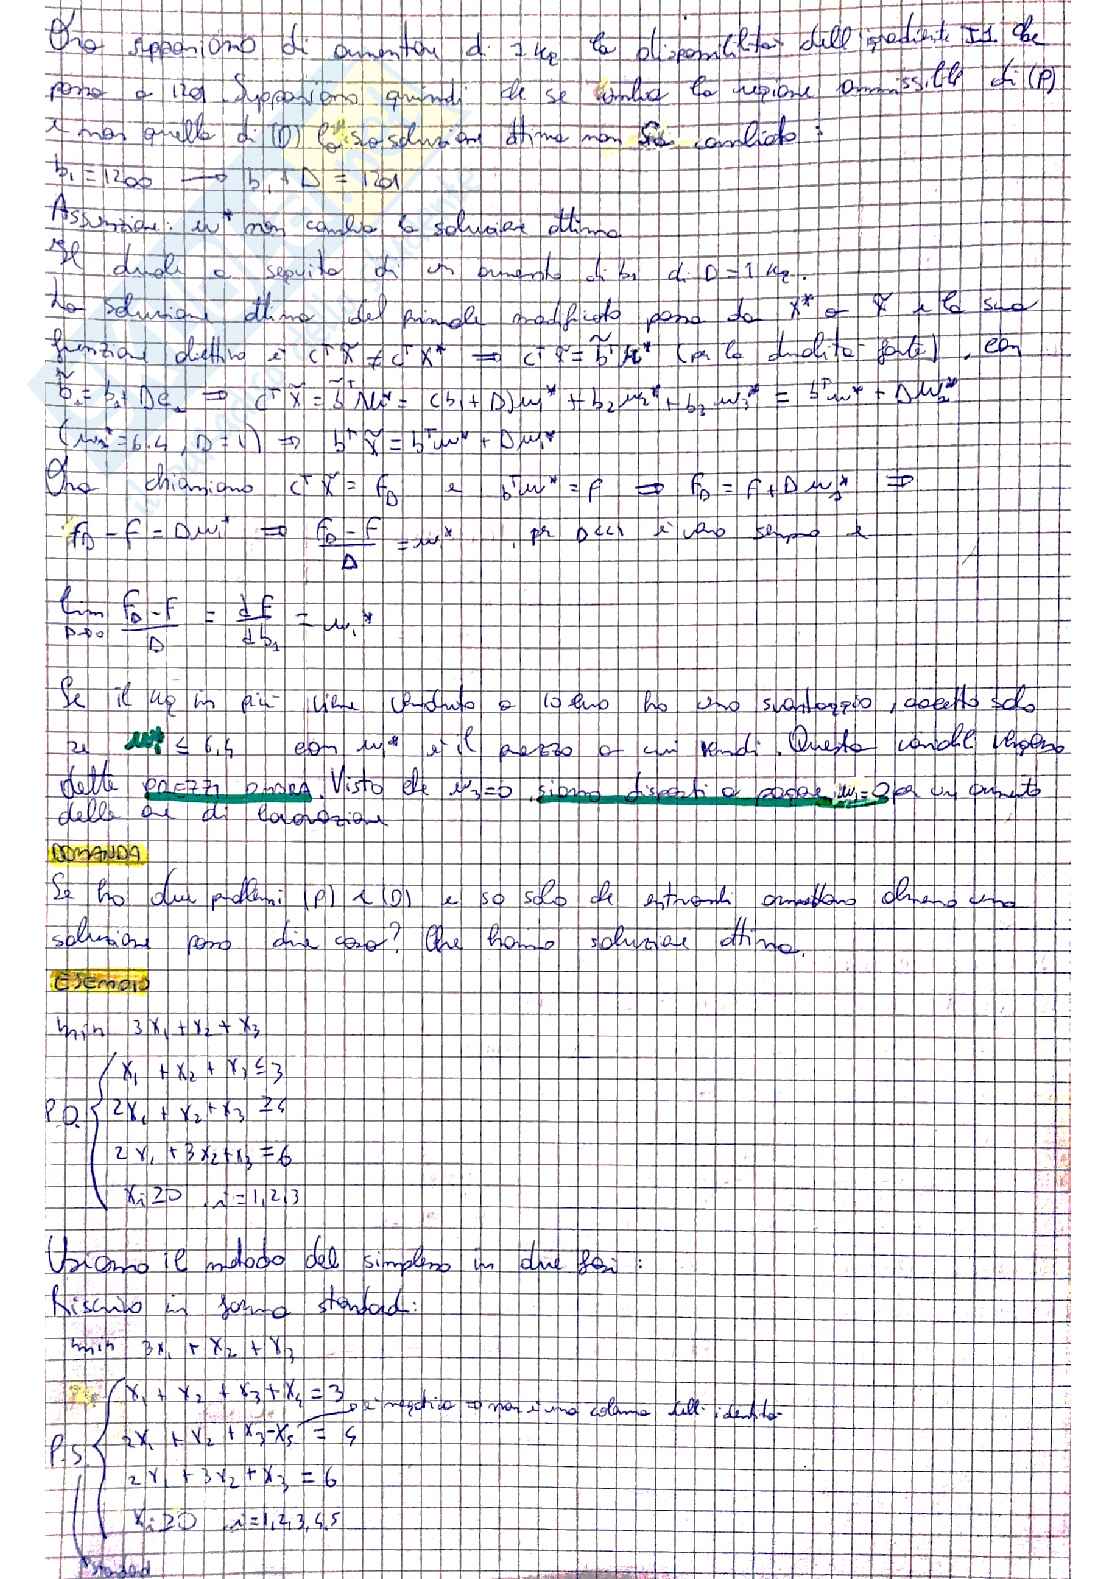 Ora supponiamo di aumentare di 1 kg la disponibilità dell'ingrediente I1 che
passa a 1201. Supponiamo quindi che se cambia la regione ammissibile di (P)
e non quella di (D) la sua soluzione ottima non sia cambiata:
b₁=1200 → b₁+D=1201
Assunzione: u* non cambia la soluzione ottima
del duale a seguito di un aumento di b₁ di D=1 kg.
La soluzione ottima del primale modificato passa da X* a X̃ e la sua
funzione obiettivo è CᵀX̃ ≠ CᵀX* ⇒ CᵀX̃ = b̃ᵀu* (per la dualità forte), con
b̃ = b₁ + De₁ ⇒ CᵀX̃ = b̃ᵀu* = (b₁+D)u₁* + b₂u₂* + b₃u₃* = bᵀu* + Du₁*
(u₁*=6.4, D=1) ⇒ bᵀX̃ = bᵀu* + Du₁*
Ora chiamiamo CᵀX̃ = F_D e bᵀu* = F ⇒ F_D = F + Du₁* ⇒
F_D − F = Du₁* ⇒ (F_D − F)/D = u₁*, per D<<1 è vero sempre e
lim D→0 (F_D − F)/D = dF/db₁ = u₁*
Se il kg in più viene venduto a 10 euro ho uno svantaggio, accetto solo
se u* ≤ 6,4 con u* è il prezzo a cui vendi. Queste variabili vengono
dette prezzi ombra. Visto che u₃=0 siamo disposti a pagare u₃=0 per un aumento
delle ore di lavorazione
DOMANDA
Se ho due problemi (P) e (D) e so solo che entrambi ammettono almeno una
soluzione posso dire cosa? Che hanno soluzione ottima.
ESEMPIO
min 3X₁+X₂+X₃
X₁ + X₂ + X₃ ≤ 3
P.O. 2X₁ + X₂ + X₃ ≥ 4
2X₁ + 3X₂ + X₃ = 6
Xi ≥ 0, i=1,2,3
Usiamo il metodo del simplesso in due fasi:
Riscrivo in forma standard:
min 3X₁ + X₂ + X₃
X₁ + X₂ + X₃ + X₄ = 3
è negativa ⇒ non è una colonna dell'identità
P.S. 2X₁ + X₂ + X₃ − X₅ = 4
2X₁ + 3X₂ + X₃ = 6
Xi ≥ 0, i=1,2,3,4,5
standard